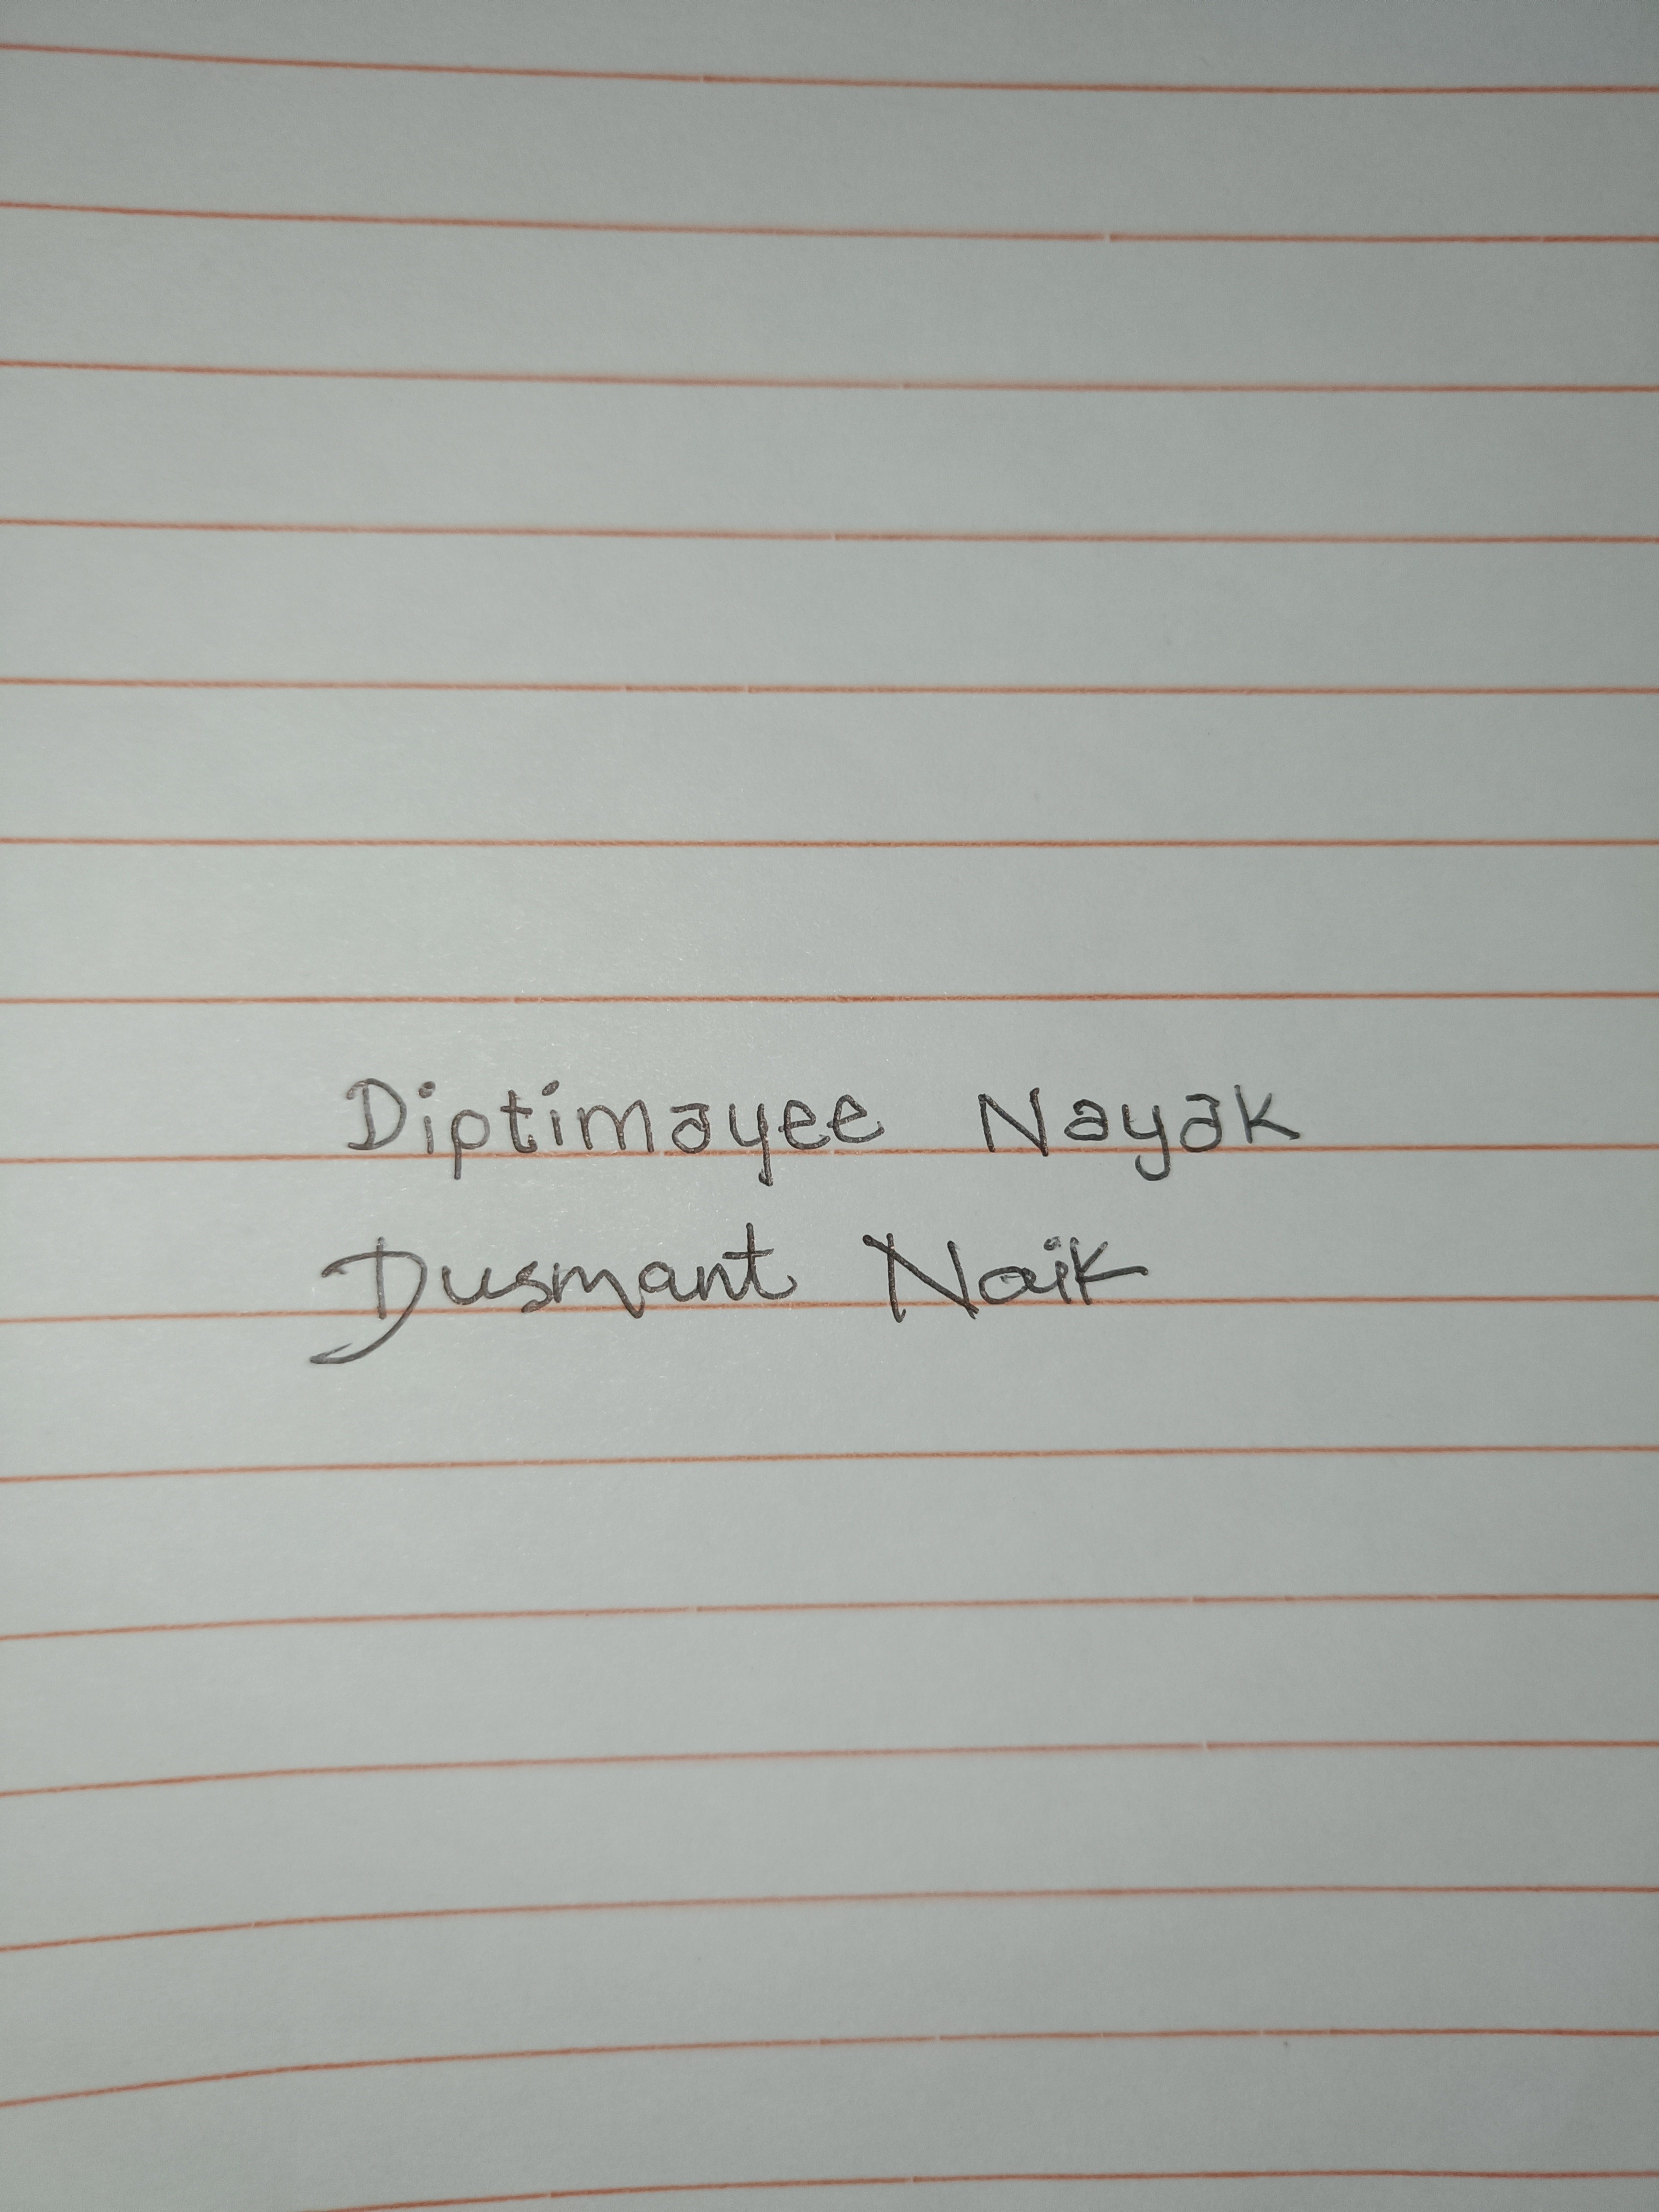 Diptimayee Nayak
Dusmant Naik